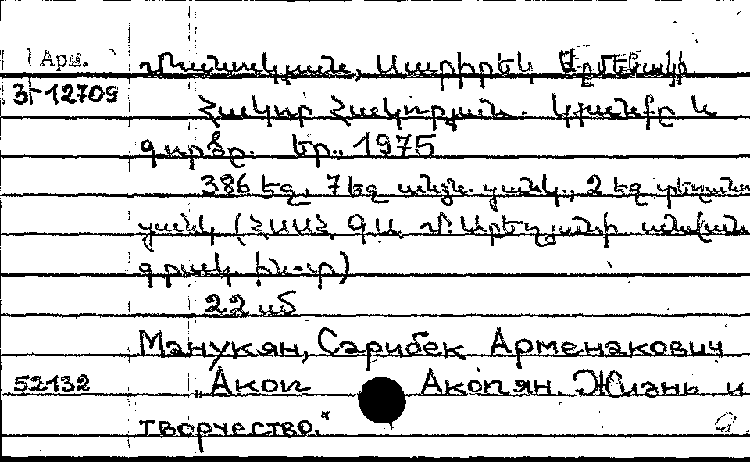 Арм.
Մանուկյան, Սարիբեկ Արմենակի
3-12709
Հակոբ Հակոբյան. Կյանքը և
գործը. Եր., 1975
386 եջ, 7 եջ անձն. ցանկ., 2 եջ տեղան
ցանկ (ՀՍՍՀ ԳԱ Մ. Աբեղյանի անվան
գրակ. ին-տ)
22 սմ
Манукян, Сарибек Арменакович
52132
„Акоп Акопян. Жизнь и
творчество."